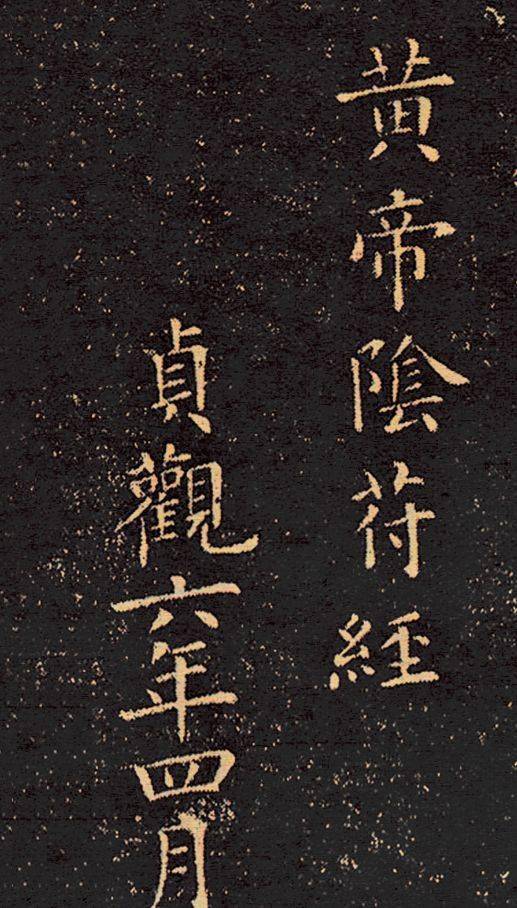 黄帝陰苻經
貞觀六年四月